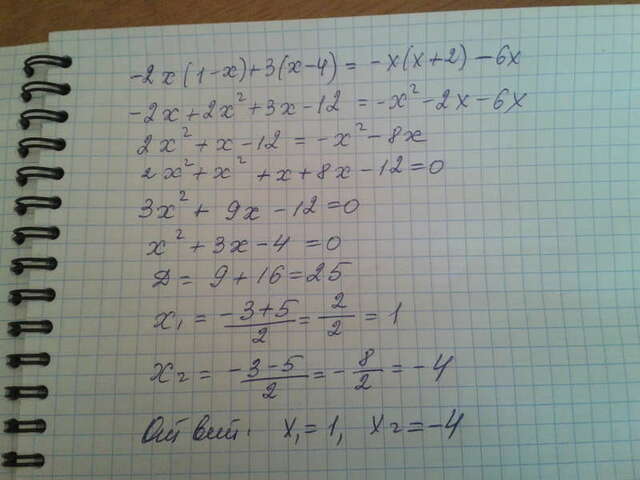 -2x(1-x)+3(x-4) = -x(x+2)-6x
-2x+2x²+3x-12 = -x²-2x-6x
2x²+x-12 = -x²-8x
2x²+x²+x+8x-12=0
3x²+9x-12=0
x²+3x-4=0
Д= 9+16=25
x₁ = (-3+5)/2 = 2/2 = 1
x₂ = (-3-5)/2 = -8/2 = -4
Ответ: x₁=1, x₂=-4